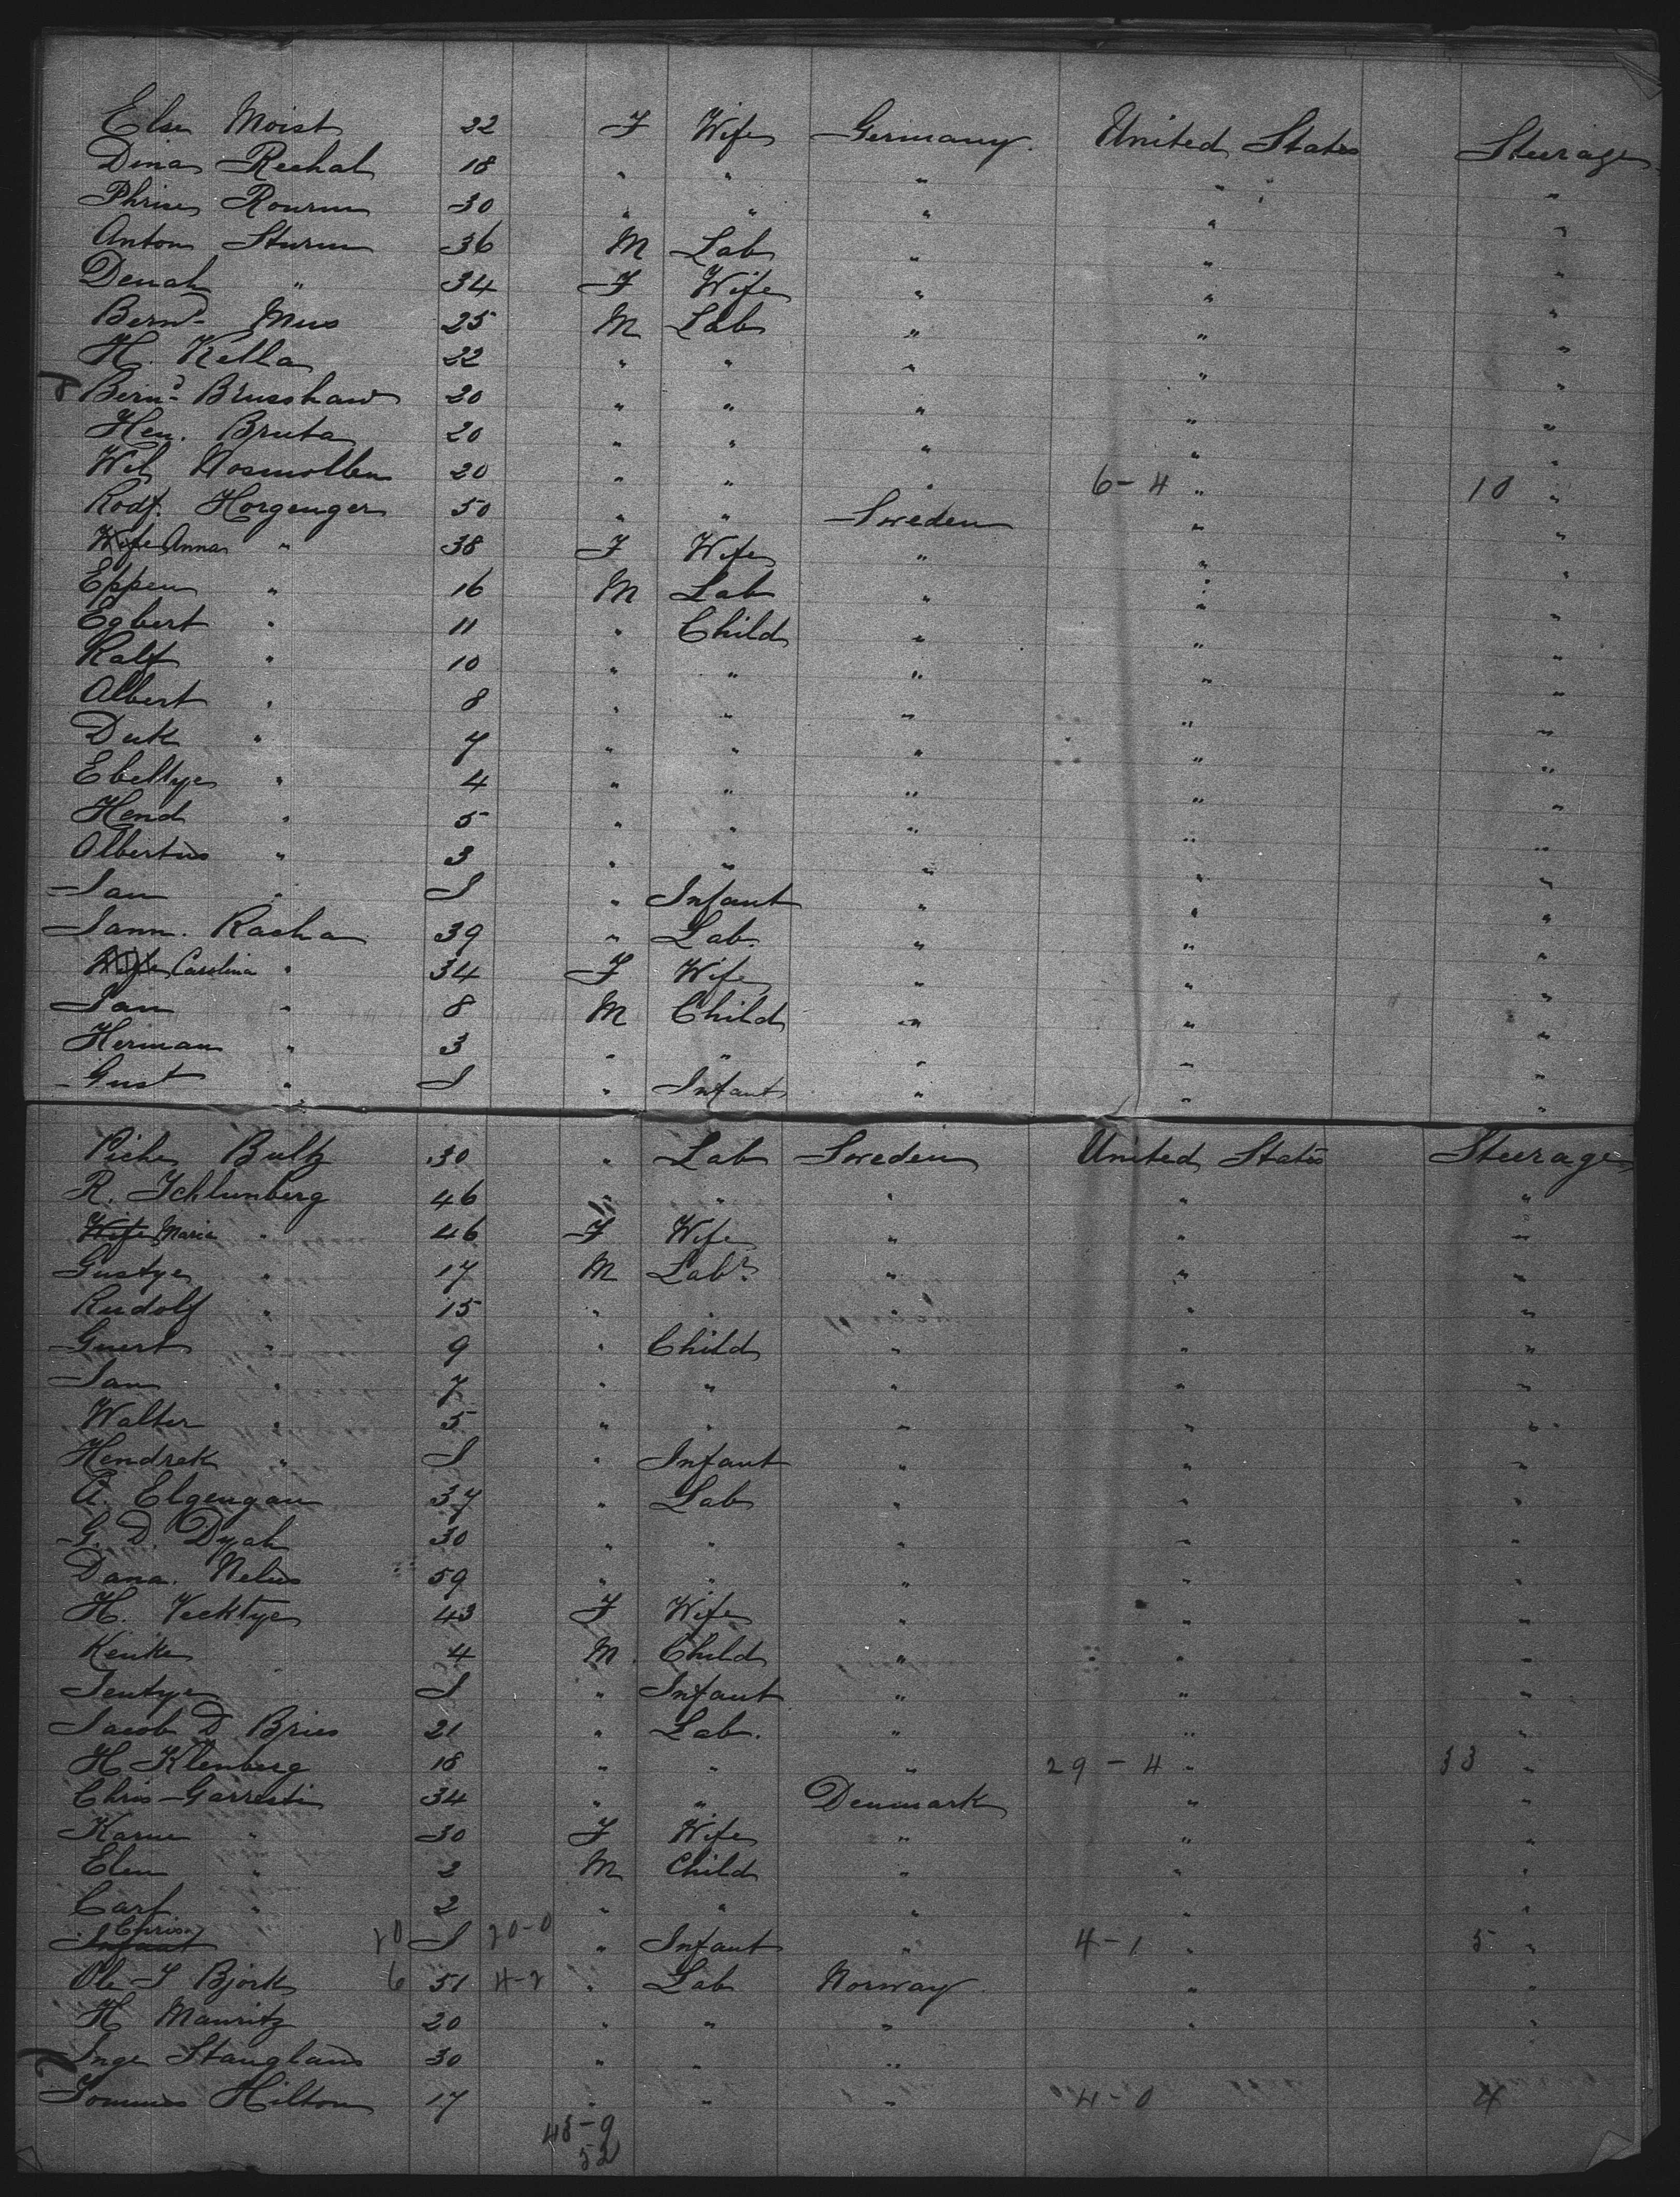 Else Moist 22 F Wife Germany. United States Steerage
Dina Rechat 18 " " " " "
Phrise Rourm 30 " " " " "
Anton Sturm 36 M Lab " " "
Denah " 34 F Wife " " "
Bernd Mus 25 M Lab " " "
H. Kella 22 " " " " "
Bernd Brusshaw 20 " " " " "
Hen. Bruta 20 " " " " "
Wil Nosmollen 20 " " " 6-4 " 10 "
Rodf. Horgenger 50 " " Sweden " "
Wife Anna " 38 F Wife " " "
Eppen " 16 M Lab " " "
Egbert " 11 " Child " " "
Ralf " 10 " " " " "
Albert " 8 " " " " "
Derk " 7 " " " " "
Ebeltye " 4 " " " " "
Hend " 5 " " " " "
Albertus " 3 " " " " "
Jan " I " Infant " " "
Jann. Racha 39 " Lab. " " "
Wife Carolina " 34 F Wife " " "
Jan " 8 M Child " " "
Herman " 3 " " " " "
Gust " I " Infant " " "
Piche Bultz 30 " Lab Sweden United States Steerage
R. Schlunberg 46 " " " " "
Wife Maria " 46 F Wife " " "
Gustye " 17 M Labr. " " "
Rudolf " 15 " " " " "
Guert " 9 " Child " " "
Jan " 7 " " " " "
Walter " 5 " " " " "
Hendrek " I " Infant " " "
A. Elgengau 37 " Lab " " "
G. D. Dyah 30 " " " " "
Dana. Nelus 59 " " " " "
H. Vecktye 43 F Wife " " "
Kenke 4 M. Child " " "
Jentye I " Infant " " "
Jacob D Bries 21 " Lab. " " "
H Klenberg 18 " " " 29-4 " 33 "
Chris Garresti 34 " " Denmark " "
Karne " 30 F Wife " " "
Elen " 2 M Child " " "
Carl " 2 " " " " "
Chris
Infant 20 I 20-0 " Infant " 4-1 " 5 "
Ole J Bjork 6 51 4-2 " Lab Norway. " "
H Mauritz 20 " " " " "
Inge Stauglaus 30 " " "
Tommes Hilton 17 " " " 4-0 4
48-9
52